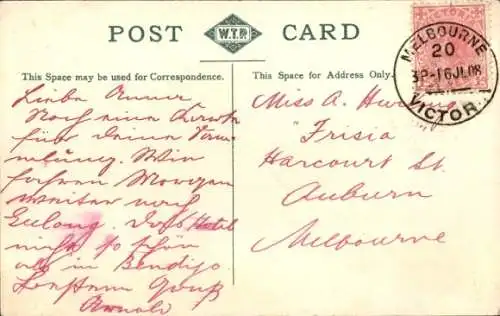 POST CARD
W.T.P.
This Space may be used for Correspondence.
This Space for Address Only.
MELBOURNE
20
3P-16JL08
VICTOR
Liebe Anna
Noch eine Karte
für deine Samm
lung. Wir
fahren Morgen
weiter nach
Geelong. Das Hotel
nicht so schön
als in Bendigo
Gruß
Arnold
Miss A.
"Frisia
Harcourt St.
Auburn
Melbourne